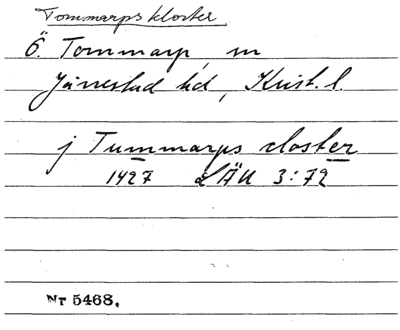 Tommarps kloster
Ö. Tommarp, sn
Järrestad hd, Krist. l.
j Tummarps closter
1427 LÄU 3:72
Nr 5468.